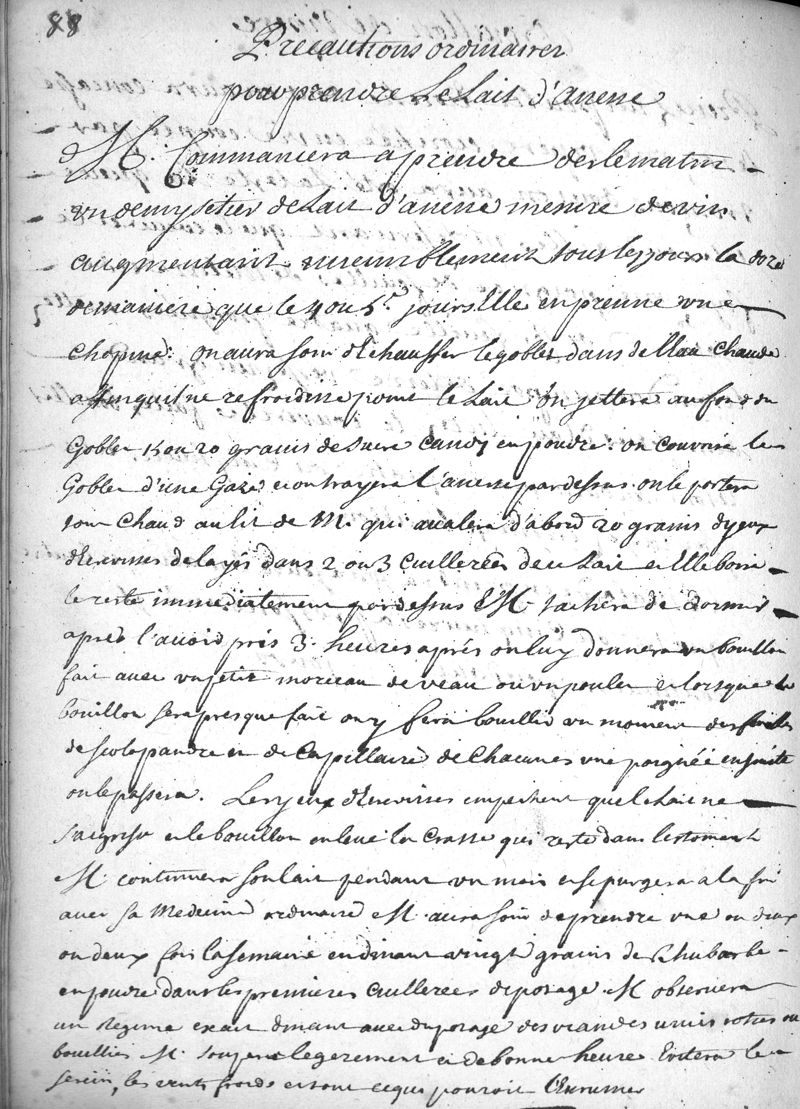 88
Precautions ordinaires
pour prendre Le Lait d'anesse
M. Commancera a prendre des le matin
un demy setier de Lait d'anesse mesure de vin
augmentant insensiblement tous les jours la doze
de maniere que le 4 ou 5e. jours Elle en prenne une
Chopine: on aura soin d'Echauffer le goblet dans de l'Eau chaude
affin quil ne refroidisse point le Lait on jettera au fond du
Goblet 15 ou 20 grains de sucre candy en poudre. on couvrira le
Goblet d'une Gaze et on trayera l'anesse par dessus. on le portera
tout Chaud au lit de M. qui avalera d'abord 20 grains d'yeux
d'Ecrevisses delayés dans 2 ou 3 cuillerées de ce Lait et Elle boira
le reste immediatement par dessus M. tachera de dormir
apres l'avoir pris 3. heures après on luy donnera un bouillon
fait avec un petit morceau de veau ou un poulet et lorsque le
bouillon sera presque fait on y fera bouillir un moment des feuilles
de scolopandre et de Capillaire de chacunes une poignée ensuite
on le passera. Les yeux d'Ecrevisses empechent que le Lait ne
s'aigrisse et le bouillon enleve la crasse qui reste dans l'estomach
M. continuera son lait pendant un mois et se purgera a la fin
avec sa Medecine ordinaire M. aura soin de prendre une ou deux
ou deux fois la semaine en dinant vingt grains de Rhubarbe
en poudre dans les premieres cuillerées de potage. M. observera
un Regime exact dinant avec du potage des viandes roties ou
bouillies M. soupera legerement et de bonne heure Evitera le
serein, les vents froids et tout ce qui pourroit l'Enrumer